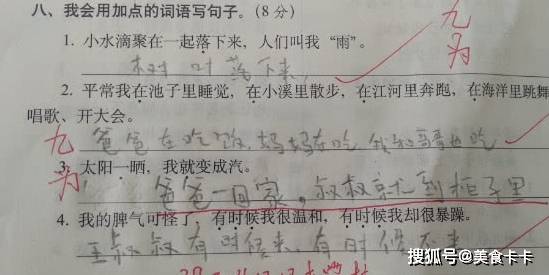 八、我会用加点的词语写句子。(8分)
1. 小水滴聚在一起落下来，人们叫我“雨”。
树叶落下来
2. 平常我在池子里睡觉，在小溪里散步，在江河里奔跑，在海洋里跳舞
唱歌、开大会。
爸爸在吃饭，妈妈在吃 我和哥哥也吃
3. 太阳一晒，我就变成汽。
爸爸一回家，叔叔就到柜子里
4. 我的脾气可怪了，有时候我很温和，有时候我却很暴躁。
王叔叔有时候来，有时候不来。
九
为
九
为
搜狐号@美食卡卡